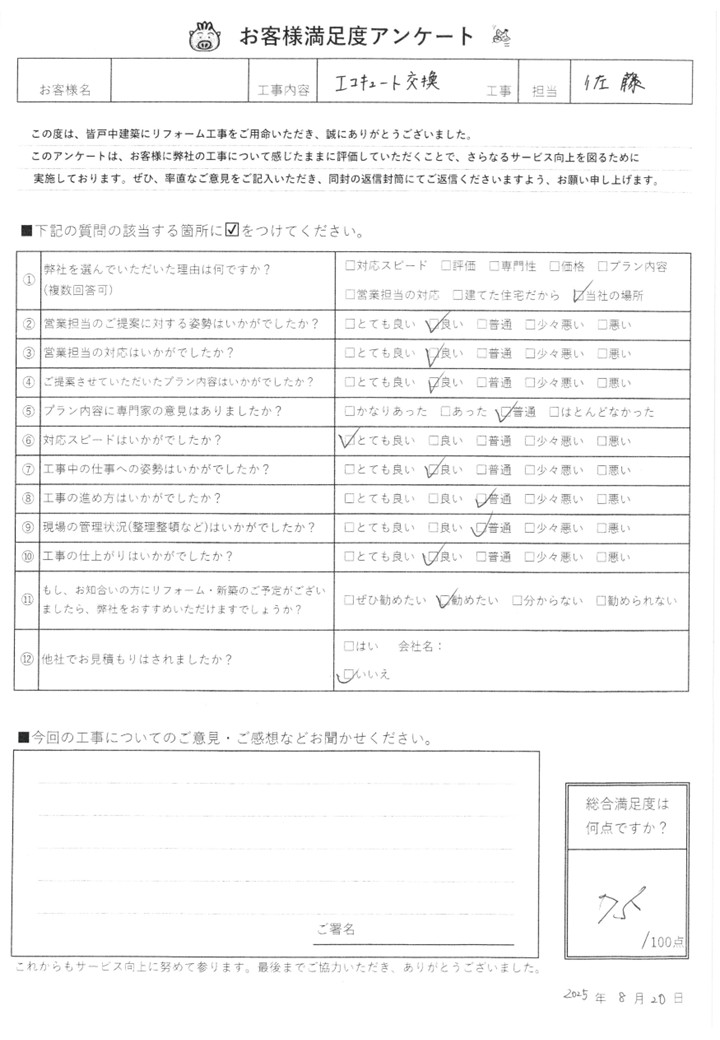 お客様満足度アンケート
お客様名 工事内容 エコキュート交換 工事 担当 佐藤
この度は、皆戸中建築にリフォーム工事をご用命いただき、誠にありがとうございました。
このアンケートは、お客様に弊社の工事について感じたままに評価していただくことで、さらなるサービス向上を図るために
実施しております。ぜひ、率直なご意見をご記入いただき、同封の返信封筒にてご返信くださいますよう、お願い申し上げます。
■下記の質問の該当する箇所に☑をつけてください。
① 弊社を選んでいただいた理由は何ですか？ □対応スピード □評価 □専門性 □価格 □プラン内容
(複数回答可) □営業担当の対応 □建てた住宅だから ☑当社の場所
② 営業担当のご提案に対する姿勢はいかがでしたか？ □とても良い ☑良い □普通 □少々悪い □悪い
③ 営業担当の対応はいかがでしたか？ □とても良い ☑良い □普通 □少々悪い □悪い
④ ご提案させていただいたプラン内容はいかがでしたか？ □とても良い ☑良い □普通 □少々悪い □悪い
⑤ プラン内容に専門家の意見はありましたか？ □かなりあった □あった ☑普通 □ほとんどなかった
⑥ 対応スピードはいかがでしたか？ ☑とても良い □良い □普通 □少々悪い □悪い
⑦ 工事中の仕事への姿勢はいかがでしたか？ □とても良い ☑良い □普通 □少々悪い □悪い
⑧ 工事の進め方はいかがでしたか？ □とても良い □良い ☑普通 □少々悪い □悪い
⑨ 現場の管理状況(整理整頓など)はいかがでしたか？ □とても良い □良い ☑普通 □少々悪い □悪い
⑩ 工事の仕上がりはいかがでしたか？ □とても良い ☑良い □普通 □少々悪い □悪い
⑪ もし、お知合いの方にリフォーム・新築のご予定がござい
ましたら、弊社をおすすめいただけますでしょうか？ □ぜひ勧めたい ☑勧めたい □分からない □勧められない
⑫ 他社でお見積もりはされましたか？ □はい 会社名：
☑いいえ
■今回の工事についてのご意見・ご感想などお聞かせください。
総合満足度は
何点ですか？
75
/100点
ご署名
これからもサービス向上に努めて参ります。最後までご協力いただき、ありがとうございました。
2025年 8月 20日